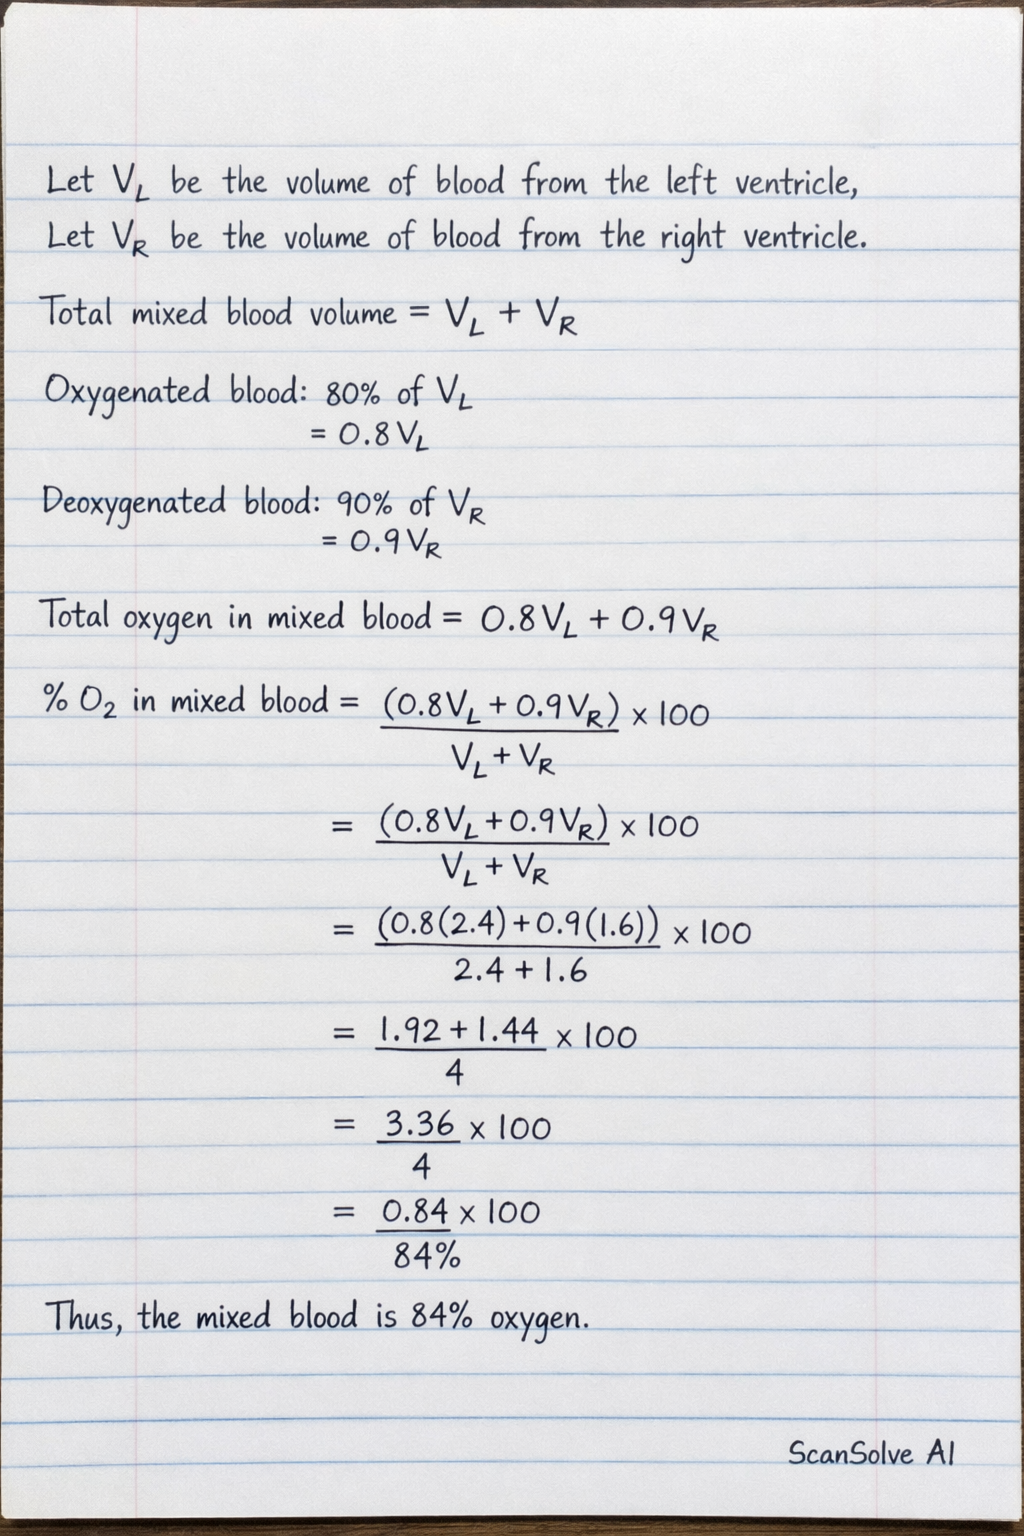 Let V_L be the volume of blood from the left ventricle,
Let V_R be the volume of blood from the right ventricle.
Total mixed blood volume = V_L + V_R
Oxygenated blood: 80% of V_L
= 0.8 V_L
Deoxygenated blood: 90% of V_R
= 0.9 V_R
Total oxygen in mixed blood = 0.8 V_L + 0.9 V_R
% O₂ in mixed blood = (0.8 V_L + 0.9 V_R) x 100
V_L + V_R
= (0.8 V_L + 0.9 V_R) x 100
V_L + V_R
= (0.8(2.4) + 0.9(1.6)) x 100
2.4 + 1.6
= 1.92 + 1.44 x 100
4
= 3.36 x 100
4
= 0.84 x 100
84%
Thus, the mixed blood is 84% oxygen.
ScanSolve AI